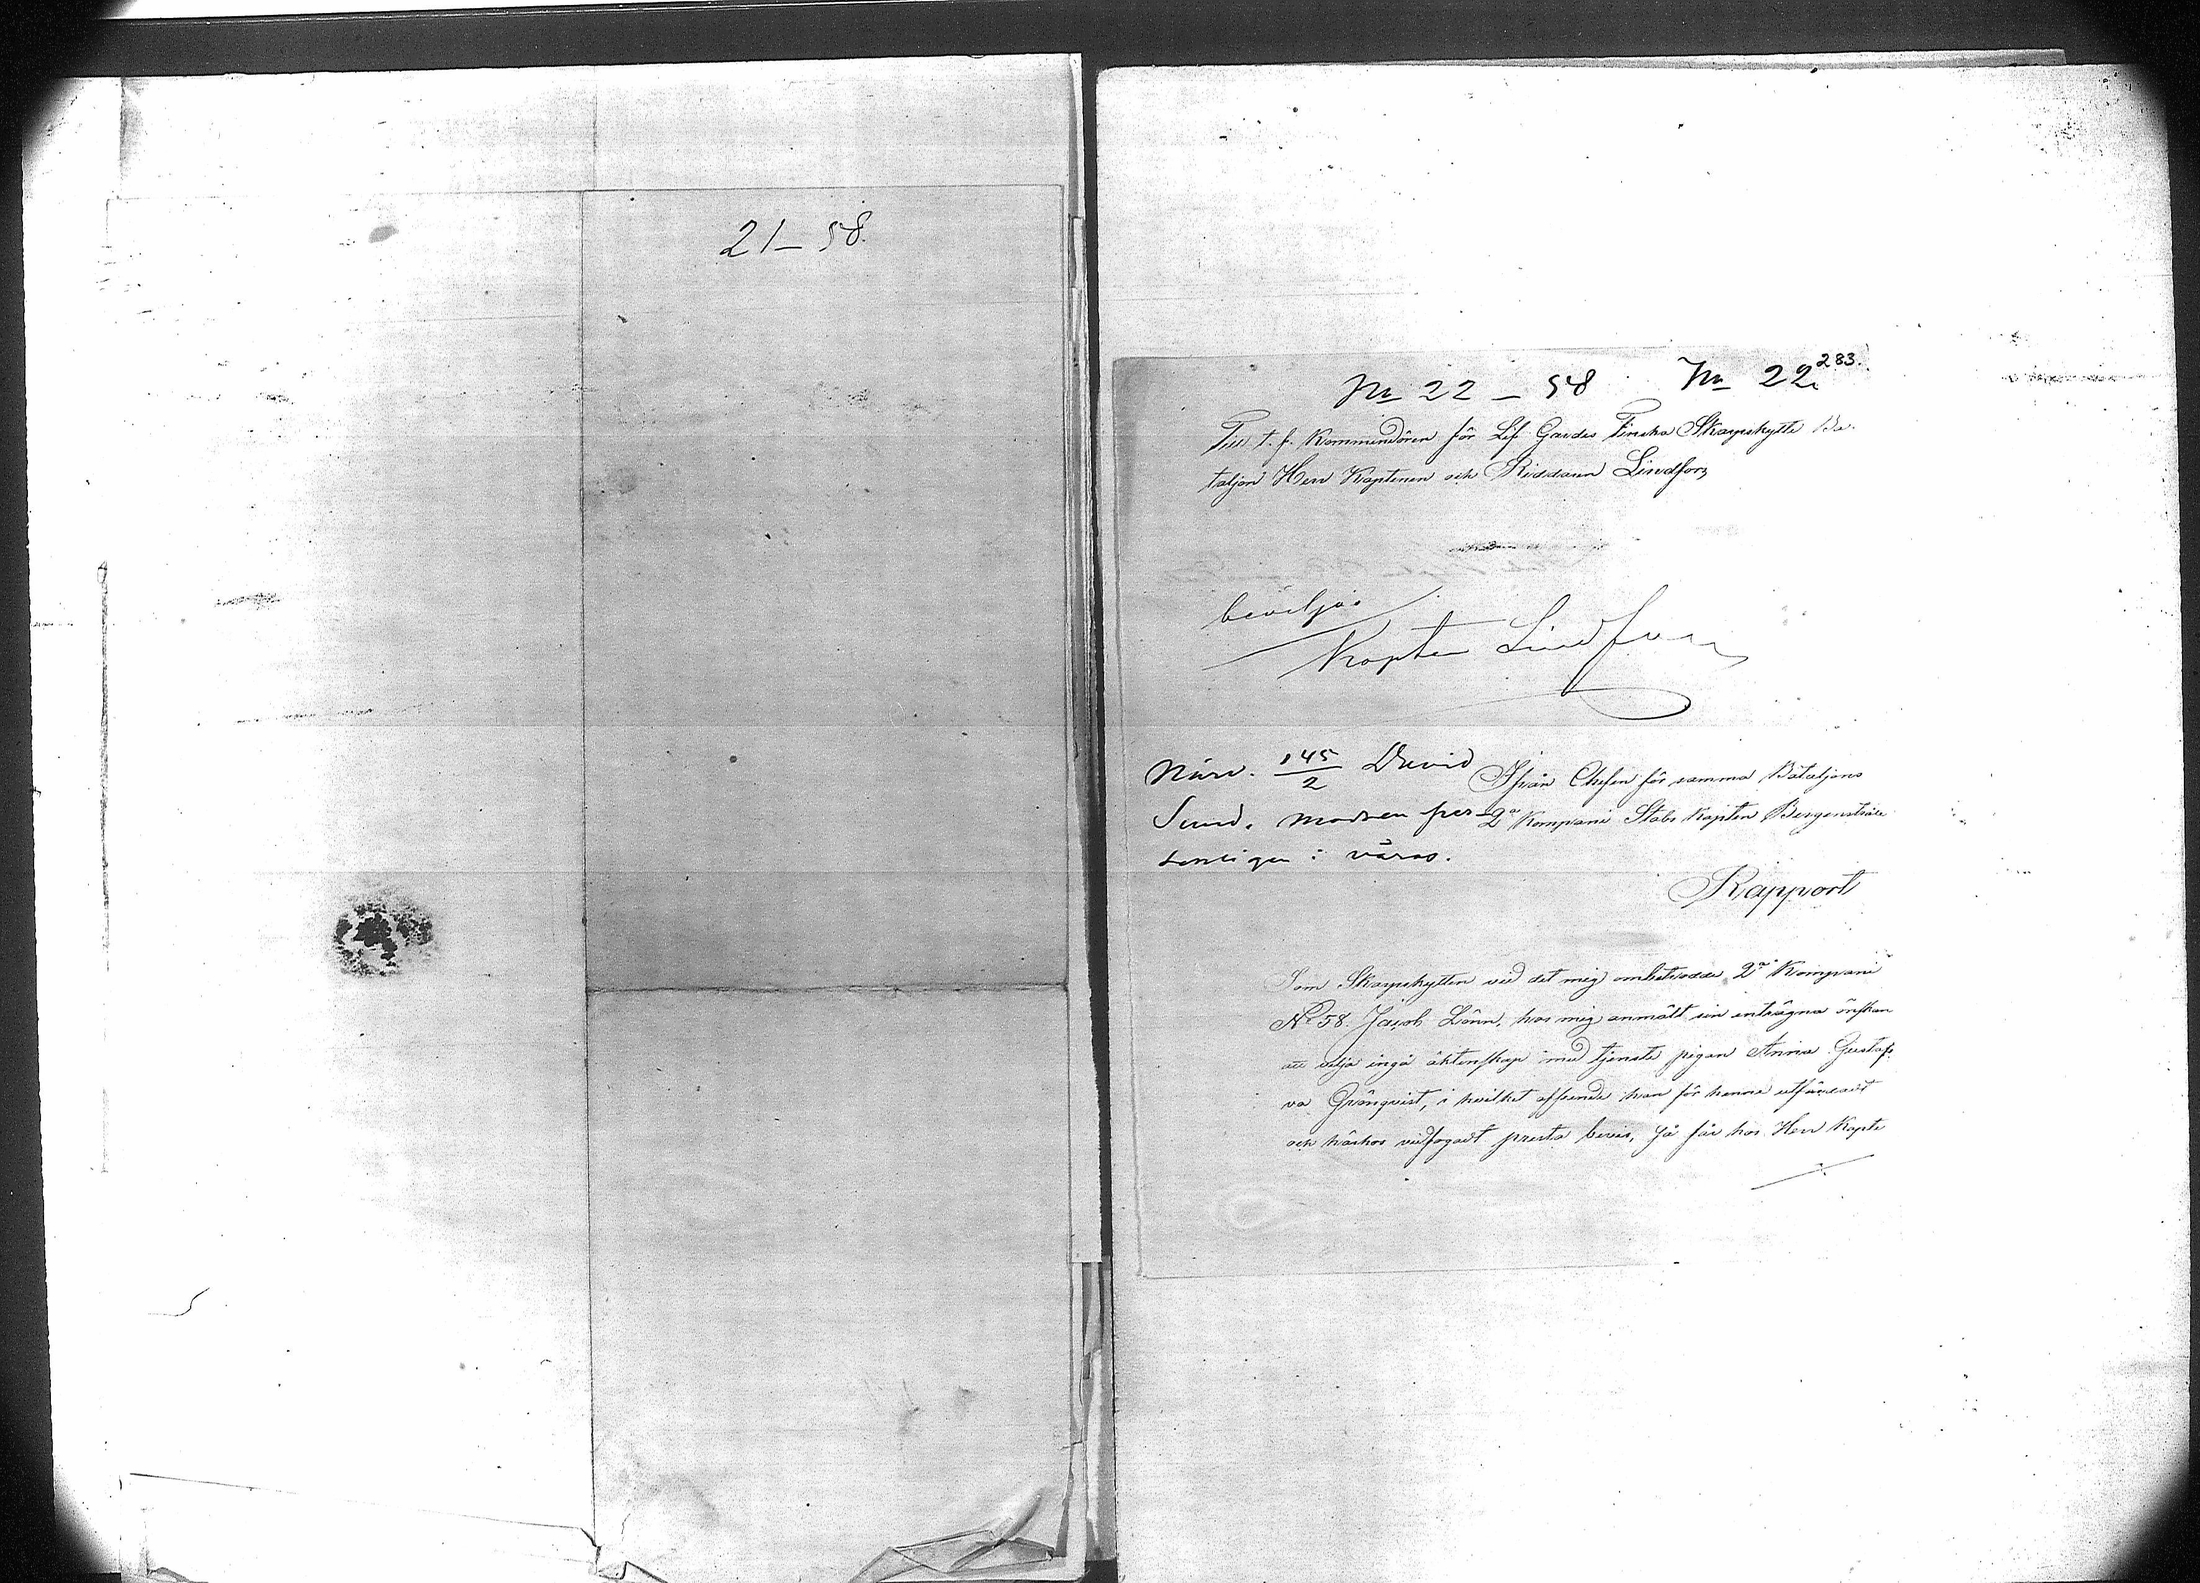 21 – 58.
283.
No 22 – 58 No 22.
Till t. f. Kommendören för Lif Gardes Finska Skarpskytte Ba-
taljon Herr Kaptenen och Riddaren Lindfors,
beviljas
Kapten Lindfors
Närv. 145/2 David
Sund. modren per-
sonligen i våras.
Ifrån Chefen för samma Bataljons
2a Kompani Stabs Kapten Bergenstråle
Rapport
Som Skarpskytten vid det mig ombetrodde 2a Kompani
No 58. Jacob Lönn, hos mig anmält sin enträgna önskan
att vilja ingå äktenskap med tjenste pigan Anna Gustaf-
va Grönqvist, i hvilket afseende han för henne utfärdadt
och härhos vidfogadt presta bevis, så får hos Herr Kapte